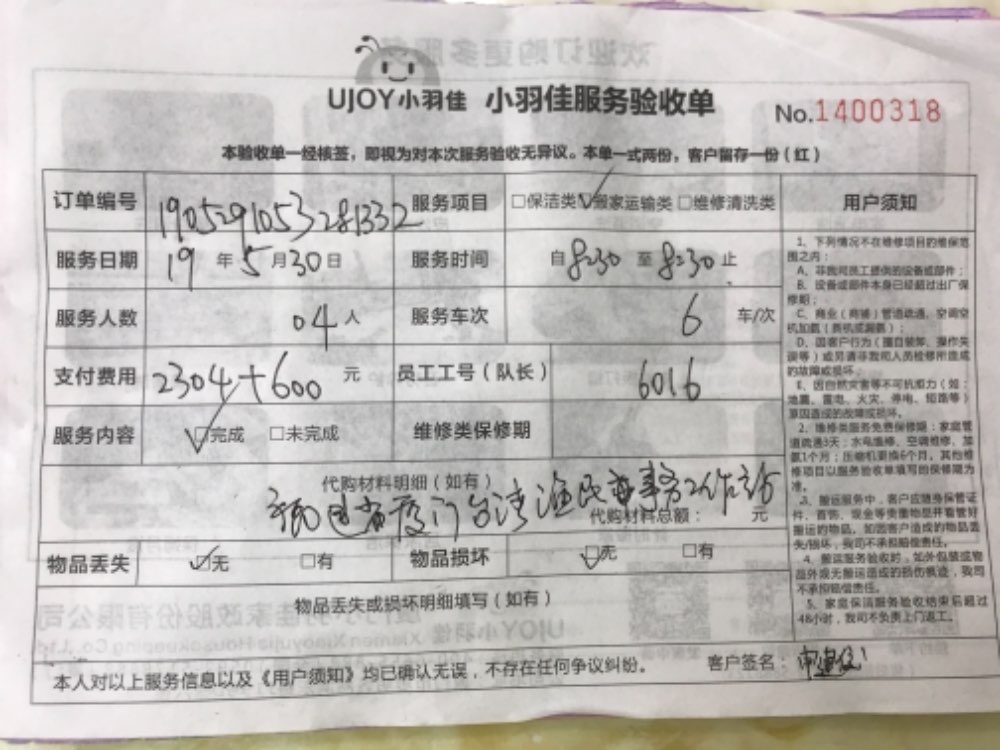 UJOY小羽佳 小羽佳服务验收单
No.1400318
本验收单一经核签，即视为对本次服务验收无异议。本单一式两份，客户留存一份（红）
订单编号 1905291053281332 服务项目 □保洁类 ☑搬家运输类 □维修清洗类
服务日期 19年5月30日 服务时间 自8:30至8:30止
服务人数 04人 服务车次 6 车/次
支付费用 2304+600 元 员工工号（队长） 6016
服务内容 ☑完成 □未完成 维修类保修期
代购材料明细（如有）
福建省厦门台湾渔民事务工作站
代购材料总额： 元
物品丢失 ☑无 □有 物品损坏 ☑无 □有
物品丢失或损坏明细填写（如有）
本人对以上服务信息以及《用户须知》均已确认无误，不存在任何争议纠纷。 客户签名：
用户须知
1、下列情况不在维修项目的维保范
围之内：
A、非我司员工提供的设备或部件；
B、设备或部件本身已经超过出厂保
修期；
C、商业（商铺）管道疏通、空调空
机加氨（装机或漏氨）；
D、因客户行为（擅自装卸、操作失
误等）或另请非我司人员检修所造成
的故障或损坏。
E、因自然灾害等不可抗拒力（如：
地震、雷电、火灾、停电、短路等）
原因造成的故障或损坏。
2、维修类服务免费保修期：家庭管
道疏通3天；水电维修、空调维修、加
氨1个月；压缩机更换6个月，其他维
修项目以服务验收单填写的保修期为
准。
3、搬运服务中，客户应随身保管证
件、首饰、现金等贵重物品并看管好
搬运的物品，如因客户造成的物品丢
失/损坏，我司不承担赔偿责任。
4、搬运服务验收时，如外包装或物
品外观无搬运造成的损伤痕迹，我司
不承担赔偿责任。
5、家庭保洁服务验收结束后超过
48小时，我司不负责上门返工。